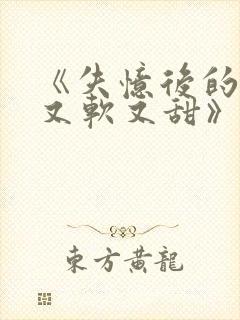 《失憶後的
又軟又甜》
東方黃龍